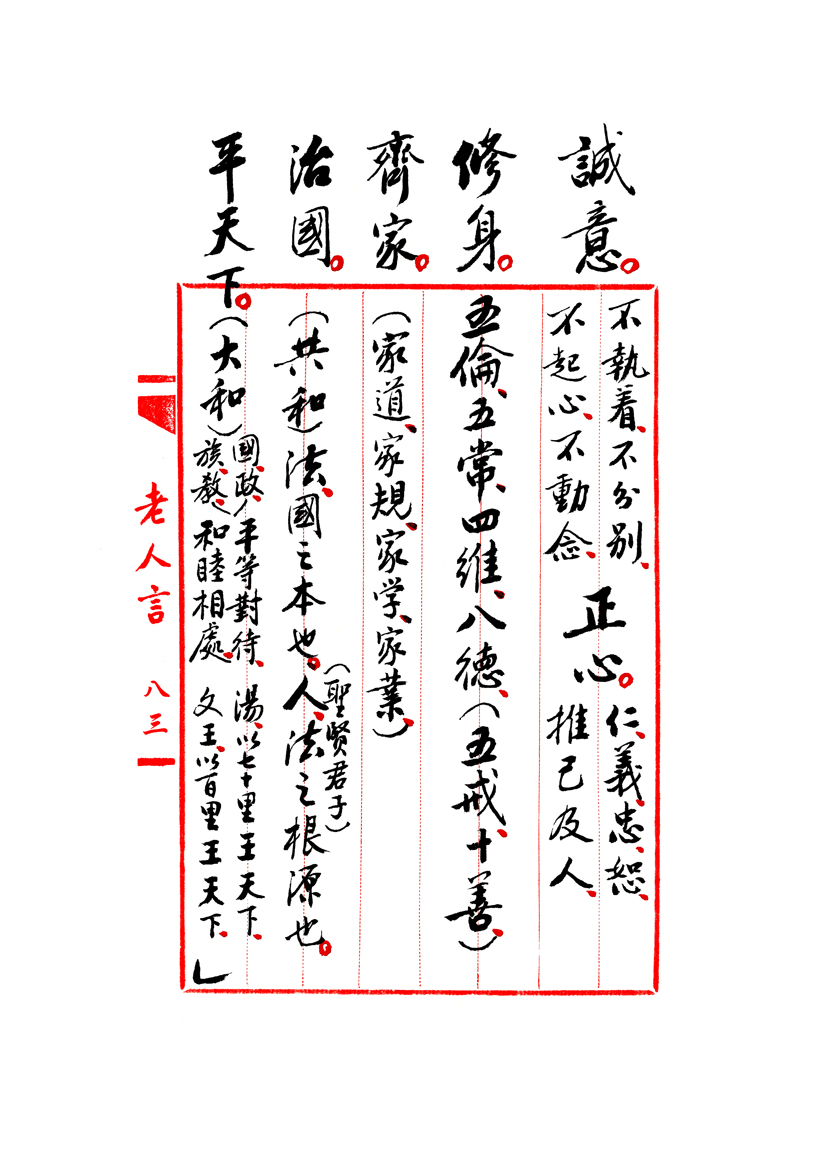 誠意。
不執着、不分別、
不起心、不動念、
正心。
仁、義、忠、恕、
推己及人、
修身。五倫、五常、四維、八德、(五戒、十善、)
齊家。(家道、家規、家学、家業、)
治國。(共和)法、國之本也。人、法之根源也。
(聖賢君子)
平天下。(大和)
國、政、平等對待、
族、教、和睦相處、
湯、以七十里王天下、
文王、以百里王天下、」
老人言 八三